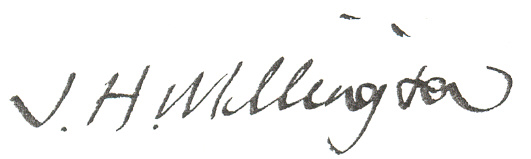 J. H. Millington